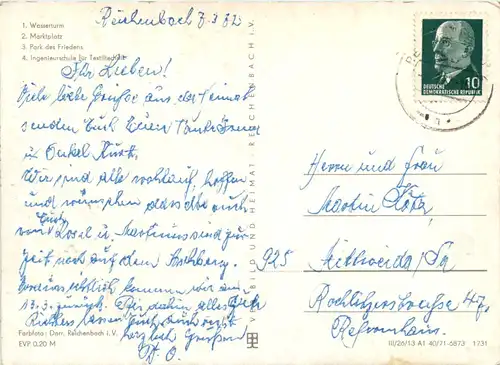 1. Wasserturm
2. Marktplatz
3. Park des Friedens
4. Ingenieurschule für Textiltechnik
Reichenbach 7.3.72
Ihr Lieben!
Viele liebe Grüße aus der Heimat
senden Euch Eure Tante
u. Onkel Kurt.
Wir sind alle wohlauf, hoffen
und wünschen dasselbe auch
von Euch.
u. Martin sind zur
Zeit noch auf dem
Voraussichtlich kommen wir am
13.3. zurück. Bis dahin alles Gute
lassen Euch auch recht
herzlich Grüßen
T. O.
Farbfoto: Darr, Reichenbach i. V.
EVP 0,20 M
VERLAG BILD UND HEIMAT · REICHENBACH I. V.
DEUTSCHE
DEMOKRATISCHE REPUBLIK
10
Herrn und Frau
Martin
925 Mittweida/Sa
Rochlitzerstrasse 47,
Reformhaus.
III/26/13 A1 40/71-6873 1731